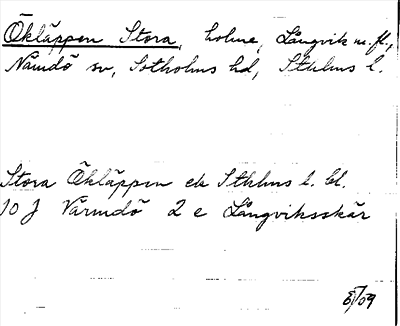 Ökläppen Stora, holme, Långvik m. fl.,
Nämdö sn, Sotholms hd, Sthlms l.
Stora Ökläppen ek Sthlms l. bl.
10 J Värmdö 2 e Långviksskär